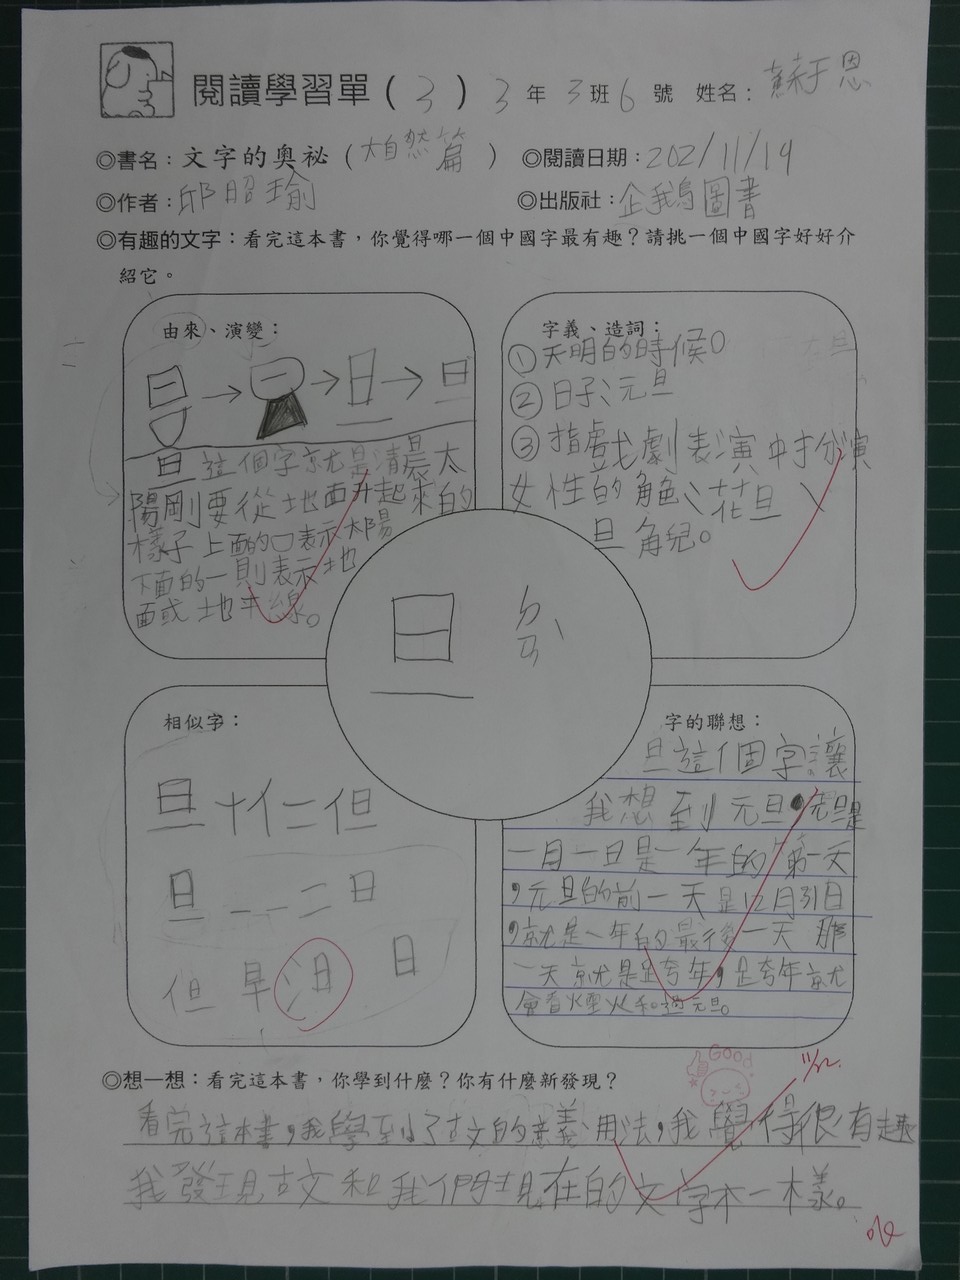 閱讀學習單(3) 3年3班6號 姓名:蘇于恩
◎書名:文字的奧祕(大自然篇) ◎閱讀日期:202/11/19
◎作者:邱昭瑜 ◎出版社:企鵝圖書
◎有趣的文字:看完這本書,你覺得哪一個中國字最有趣?請挑一個中國字好好介
紹它。
由來、演變:
→ → → 旦
旦這個字就是清晨太
陽剛要從地面升起來的
樣子上面的口表示太陽
下面的一則表示地
面或地平線。
字義、造詞:
①天明的時候。
②日子、元旦
③指戲劇表演中扮演
女性的角色、花旦、
旦角兒。
旦 ㄉㄢˋ
相似字:
旦+亻=但
旦-一=日
但 早 泪 日
字的聯想:
旦這個字讓
我想到元旦,元旦是
一月一日是一年的第一天
,元旦的前一天是12月31日
,就是一年的最後一天 那
一天就是跨年,跨年就
會看煙火和過元旦。
◎想一想:看完這本書,你學到什麼?你有什麼新發現?
Good
11/22
看完這本書,我學到了古文的意義、用法,我覺得很有趣
我發現古文和我們現在的文字不一樣。